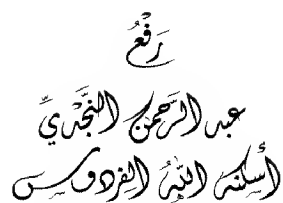 رَفْعُ
عبد الرَّحمنِ النَّجْدِيِّ
أسكنه اللهُ الفِردوس